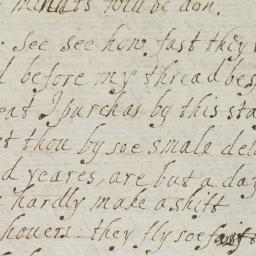 will be don.
See see how fast they
before my thread be
I purchas by this sta
thou by soe smale del
yeares, are but a da
hardly make a shift
houers: they fly soe fast